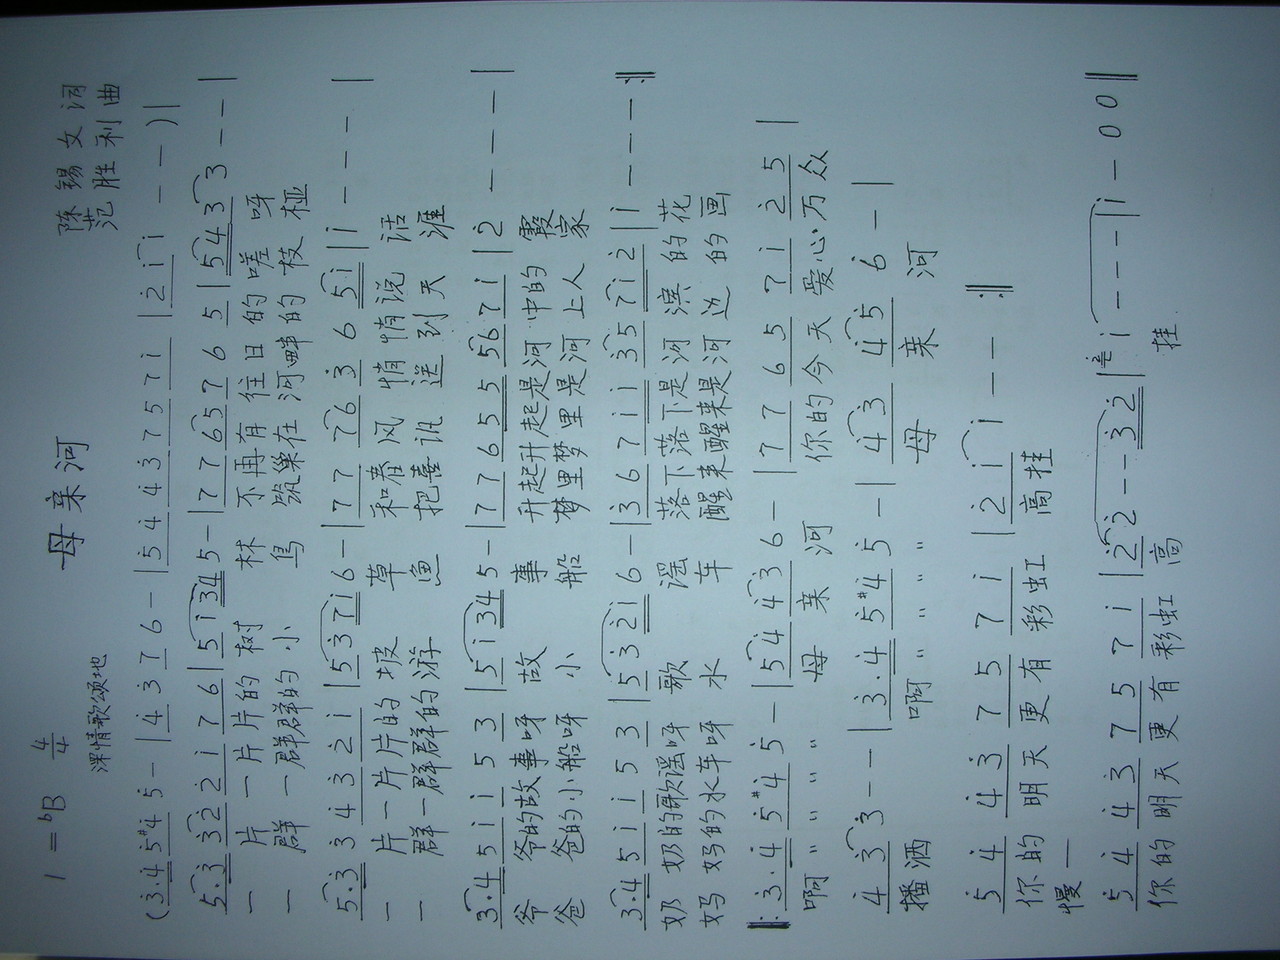 母亲河
1=♭B 4/4
陈锡文词
深情歌颂地
范胜利曲
(3.4 5 #4 5 - | 4 3 7 6 - | 5 4 4 3 7 5 7 i | 2 i i - - ) |
5.3 3 2 2 i 7 6 | 5 i 3 4 5 - | 7 7 6 5 7 6 5 | 5 4 3 3 - - |
一片一片片的树林不再有往日的嗟呀
一群一群群的小鸟筑巢在河畔的枝桠
5.3 3 4 3 2 i | 5 3 7 i 6 - | 7 7 7 6 3 6 5 i | i - - - |
一片一片片的坡草和春风悄悄说话
一群一群群的游鱼把喜讯送到天涯
3.4 5 i i 5 3 | 5 i 3 4 5 - | 7 7 6 5 5 5 6 7 i | 2 - - - |
爷爷的故事呀故事升起升起是河中的霞
爸爸的小船呀小船梦里梦里是河上人家
3.4 5 i i 5 3 | 5 3 2 i 6 - | 3 6 7 i i 3 5 7 i 2 | i - - - :‖
奶奶的歌谣呀歌谣落下落下是河滨的花
妈妈的水车呀水车醒来醒来是河边的画
‖: 3.4 5 #4 5 - | 5 4 4 3 6 - | 7 7 6 5 7 i 2 5 |
啊 〃 〃 〃 〃 母亲河 你的今天爱心·万众
4 3 3 - - | 3.4 5 #4 5 - | 4 3 4 5 6 - |
播洒 啊 〃 〃 〃 〃 母亲河
5 4 4 3 7 5 7 i | 2 i i - - :‖
你的明天更有彩虹高挂
慢—
5 4 4 3 7 5 7 i | 2 2 - - 3 2 | i - - - | i - 0 0 ‖
你的明天更有彩虹高挂